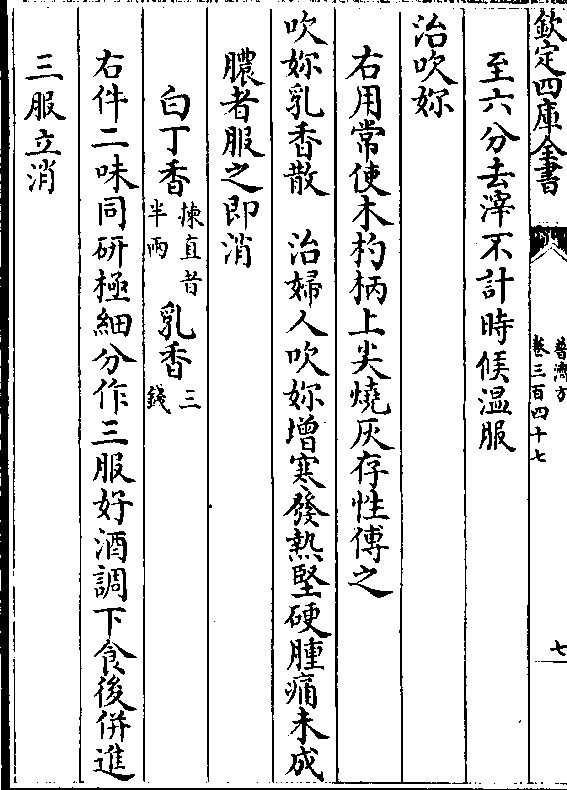 欽定四庫全書
普濟方
卷三百四十七
七
至六分去滓不計時候溫服
治吹妳
右用常使木杓柄上尖燒灰存性傅之
吹妳乳香散　治婦人吹妳增寒發熱堅硬腫痛未成
膿者服之即消
白丁香揀直者半兩　乳香三錢
右件二味同研極細分作三服好酒調下食後併進
三服立消